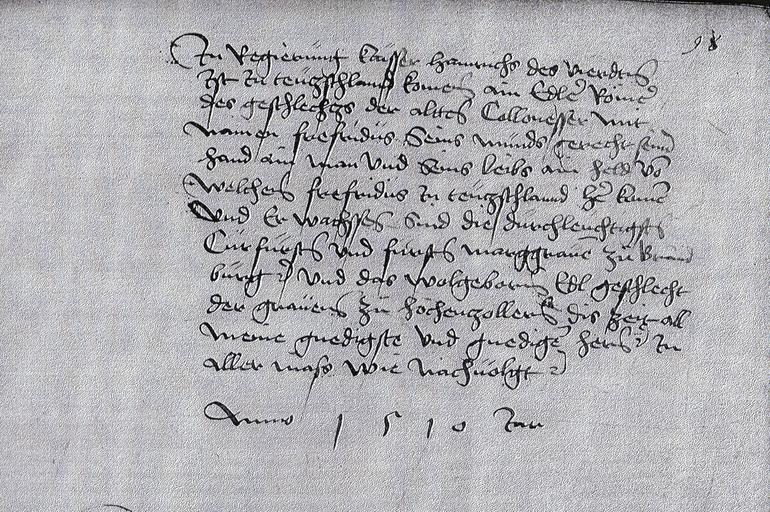 98
In Regierung kaisser Hainrichs des vierdten
Ist in teutzschland komen ain Edler Römer
des geschlechtzs der alten Collonesser mit
namen frefridus Seins munds gerecht seiner
hand ain man und Seins leibs ain held von
welchem frefridus in teutzschlannd her kumen
und Er wachssen sind die durchleuchtigsten
Curfursten und fursten marggraven zu Brannd
burg und das wolgeboren Edl geschlecht
der graven zu hochenzollern dis zeit all
meine gnedigste und gnedige hern In
aller mass wie nachvolgt
Anno 1510 Jar